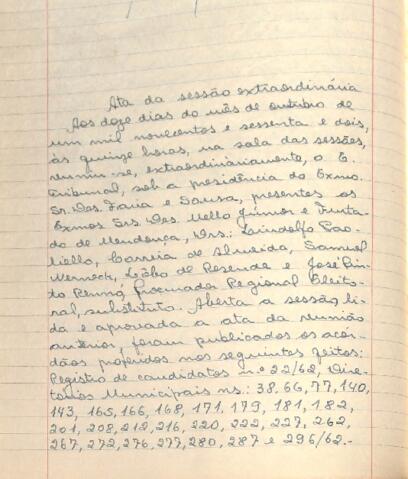 Ata da sessão extraordinária
Aos doze dias do mês de outubro de
um mil novecentos e sessenta e dois,
às quinze horas, na sala das sessões,
reuniu-se, extraordinàriamente, o E.
Tribunal, sob a presidência do Exmo.
Sr. Des. Faria e Sousa, presentes os
Exmos Srs. Des. Mello Júnior e Furta-
do de Mendonça, Drs.: Lindolfo Pao-
liello, Correia de Almeida, Samuel
Werneck, Lôbo de Resende e José Pin-
to Rennó, Procurador Regional Eleito-
ral, substituto. Aberta a sessão, li-
da e aprovada a ata da reunião
anterior, foram publicados os acór-
dãos proferidos nos seguintes feitos:
Registro de candidatos nº 22/62, Dire-
tórios Municipais ns.: 38, 66, 77, 140,
143, 165, 166, 168, 171, 179, 181, 182,
201, 208, 212, 216, 220, 222, 227, 262,
267, 272, 276, 277, 280, 287 e 296/62.-